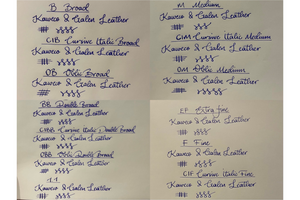 B Broad
Kaweco & Galen Leather
CIB Cursive Italic Broad
Kaweco & Galen Leather
OB Oblic Broad
Kaweco & Galen Leather
BB Double Broad
Kaweco & Galen Leather
CIBB Cursive Italic Double Broad
Kaweco & Galen Leather
OBB Oblic Double Broad
Kaweco & Galen Leather
1.1
Kaweco & Galen Leather
M Medium
Kaweco & Galen Leather
CIM Cursive Italic Medium
Kaweco & Galen Leather
OM Oblic Medium
Kaweco & Galen Leather
EF Extra Fine
Kaweco & Galen Leather
F Fine
Kaweco & Galen Leather
CIF Cursive Italic Fine
Kaweco & Galen Leather